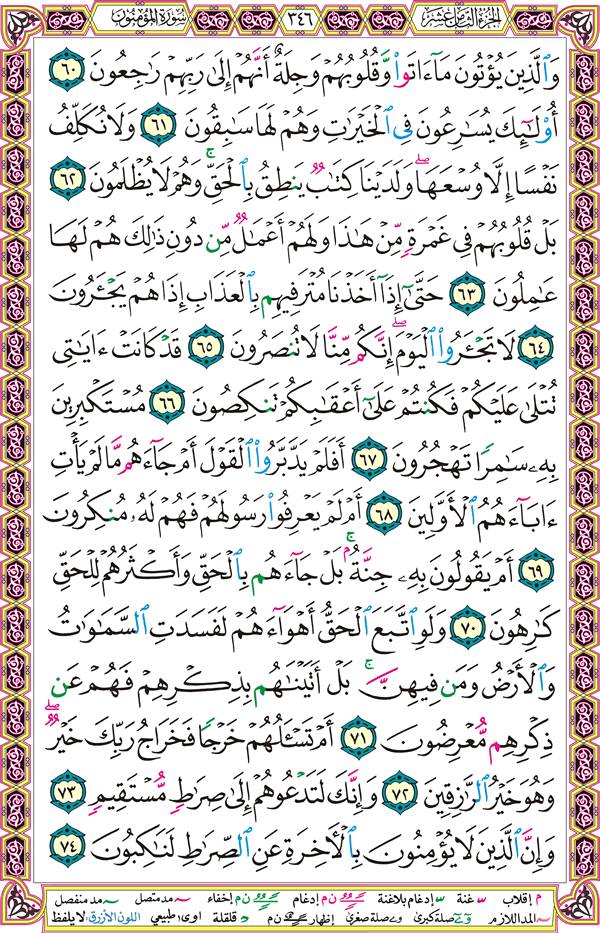 الجزء الثامن عشر ٣٤٦ سورة المؤمنون
وَٱلَّذِينَ يُؤْتُونَ مَآ ءَاتَوا۟ وَّقُلُوبُهُمْ وَجِلَةٌ أَنَّهُمْ إِلَىٰ رَبِّهِمْ رَٰجِعُونَ ٦٠
أُو۟لَٰٓئِكَ يُسَٰرِعُونَ فِى ٱلْخَيْرَٰتِ وَهُمْ لَهَا سَٰبِقُونَ ٦١ وَلَا نُكَلِّفُ
نَفْسًا إِلَّا وُسْعَهَا ۖ وَلَدَيْنَا كِتَٰبٌ يَنطِقُ بِٱلْحَقِّ ۚ وَهُمْ لَا يُظْلَمُونَ ٦٢
بَلْ قُلُوبُهُمْ فِى غَمْرَةٍ مِّنْ هَٰذَا وَلَهُمْ أَعْمَٰلٌ مِّن دُونِ ذَٰلِكَ هُمْ لَهَا
عَٰمِلُونَ ٦٣ حَتَّىٰٓ إِذَآ أَخَذْنَا مُتْرَفِيهِم بِٱلْعَذَابِ إِذَا هُمْ يَجْـَٔرُونَ
٦٤ لَا تَجْـَٔرُوا۟ ٱلْيَوْمَ ۖ إِنَّكُم مِّنَّا لَا تُنصَرُونَ ٦٥ قَدْ كَانَتْ ءَايَٰتِى
تُتْلَىٰ عَلَيْكُمْ فَكُنتُمْ عَلَىٰٓ أَعْقَٰبِكُمْ تَنكِصُونَ ٦٦ مُسْتَكْبِرِينَ
بِهِۦ سَٰمِرًا تَهْجُرُونَ ٦٧ أَفَلَمْ يَدَّبَّرُوا۟ ٱلْقَوْلَ أَمْ جَآءَهُم مَّا لَمْ يَأْتِ
ءَابَآءَهُمُ ٱلْأَوَّلِينَ ٦٨ أَمْ لَمْ يَعْرِفُوا۟ رَسُولَهُمْ فَهُمْ لَهُۥ مُنكِرُونَ
٦٩ أَمْ يَقُولُونَ بِهِۦ جِنَّةٌۢ ۚ بَلْ جَآءَهُم بِٱلْحَقِّ وَأَكْثَرُهُمْ لِلْحَقِّ
كَٰرِهُونَ ٧٠ وَلَوِ ٱتَّبَعَ ٱلْحَقُّ أَهْوَآءَهُمْ لَفَسَدَتِ ٱلسَّمَٰوَٰتُ
وَٱلْأَرْضُ وَمَن فِيهِنَّ ۚ بَلْ أَتَيْنَٰهُم بِذِكْرِهِمْ فَهُمْ عَن
ذِكْرِهِم مُّعْرِضُونَ ٧١ أَمْ تَسْـَٔلُهُمْ خَرْجًا فَخَرَاجُ رَبِّكَ خَيْرٌ ۖ
وَهُوَ خَيْرُ ٱلرَّٰزِقِينَ ٧٢ وَإِنَّكَ لَتَدْعُوهُمْ إِلَىٰ صِرَٰطٍ مُّسْتَقِيمٍ ٧٣
وَإِنَّ ٱلَّذِينَ لَا يُؤْمِنُونَ بِٱلْءَاخِرَةِ عَنِ ٱلصِّرَٰطِ لَنَٰكِبُونَ ٧٤
م إقلاب غنة إدغام بلاغنة ن م إدغام ن م إخفاء مد متصل مد منفصل
المد اللازم صلة كبرى صلة صغرى إظهار ن م قلقلة اوى طبيعي اللون الأزرق: لا يلفظ